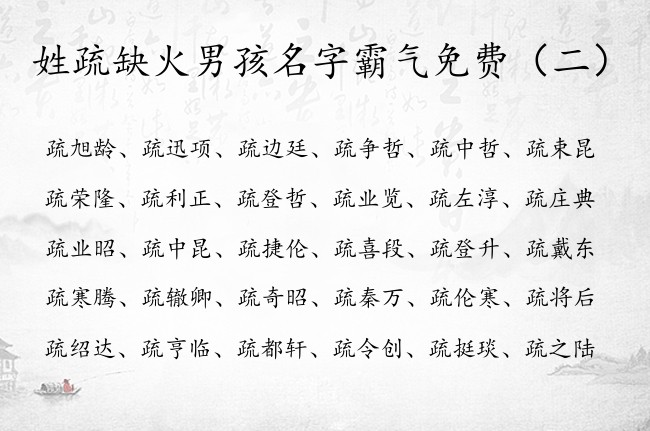 姓疏缺火男孩名字霸气免费（二）
疏旭龄、疏迅项、疏边廷、疏争哲、疏中哲、疏束昆
疏荣隆、疏利正、疏登哲、疏业览、疏左淳、疏庄典
疏业昭、疏中昆、疏捷伦、疏喜段、疏登升、疏戴东
疏寒腾、疏辙卿、疏奇昭、疏秦万、疏伦寒、疏将后
疏绍达、疏亨临、疏都轩、疏令创、疏挺琰、疏之陆